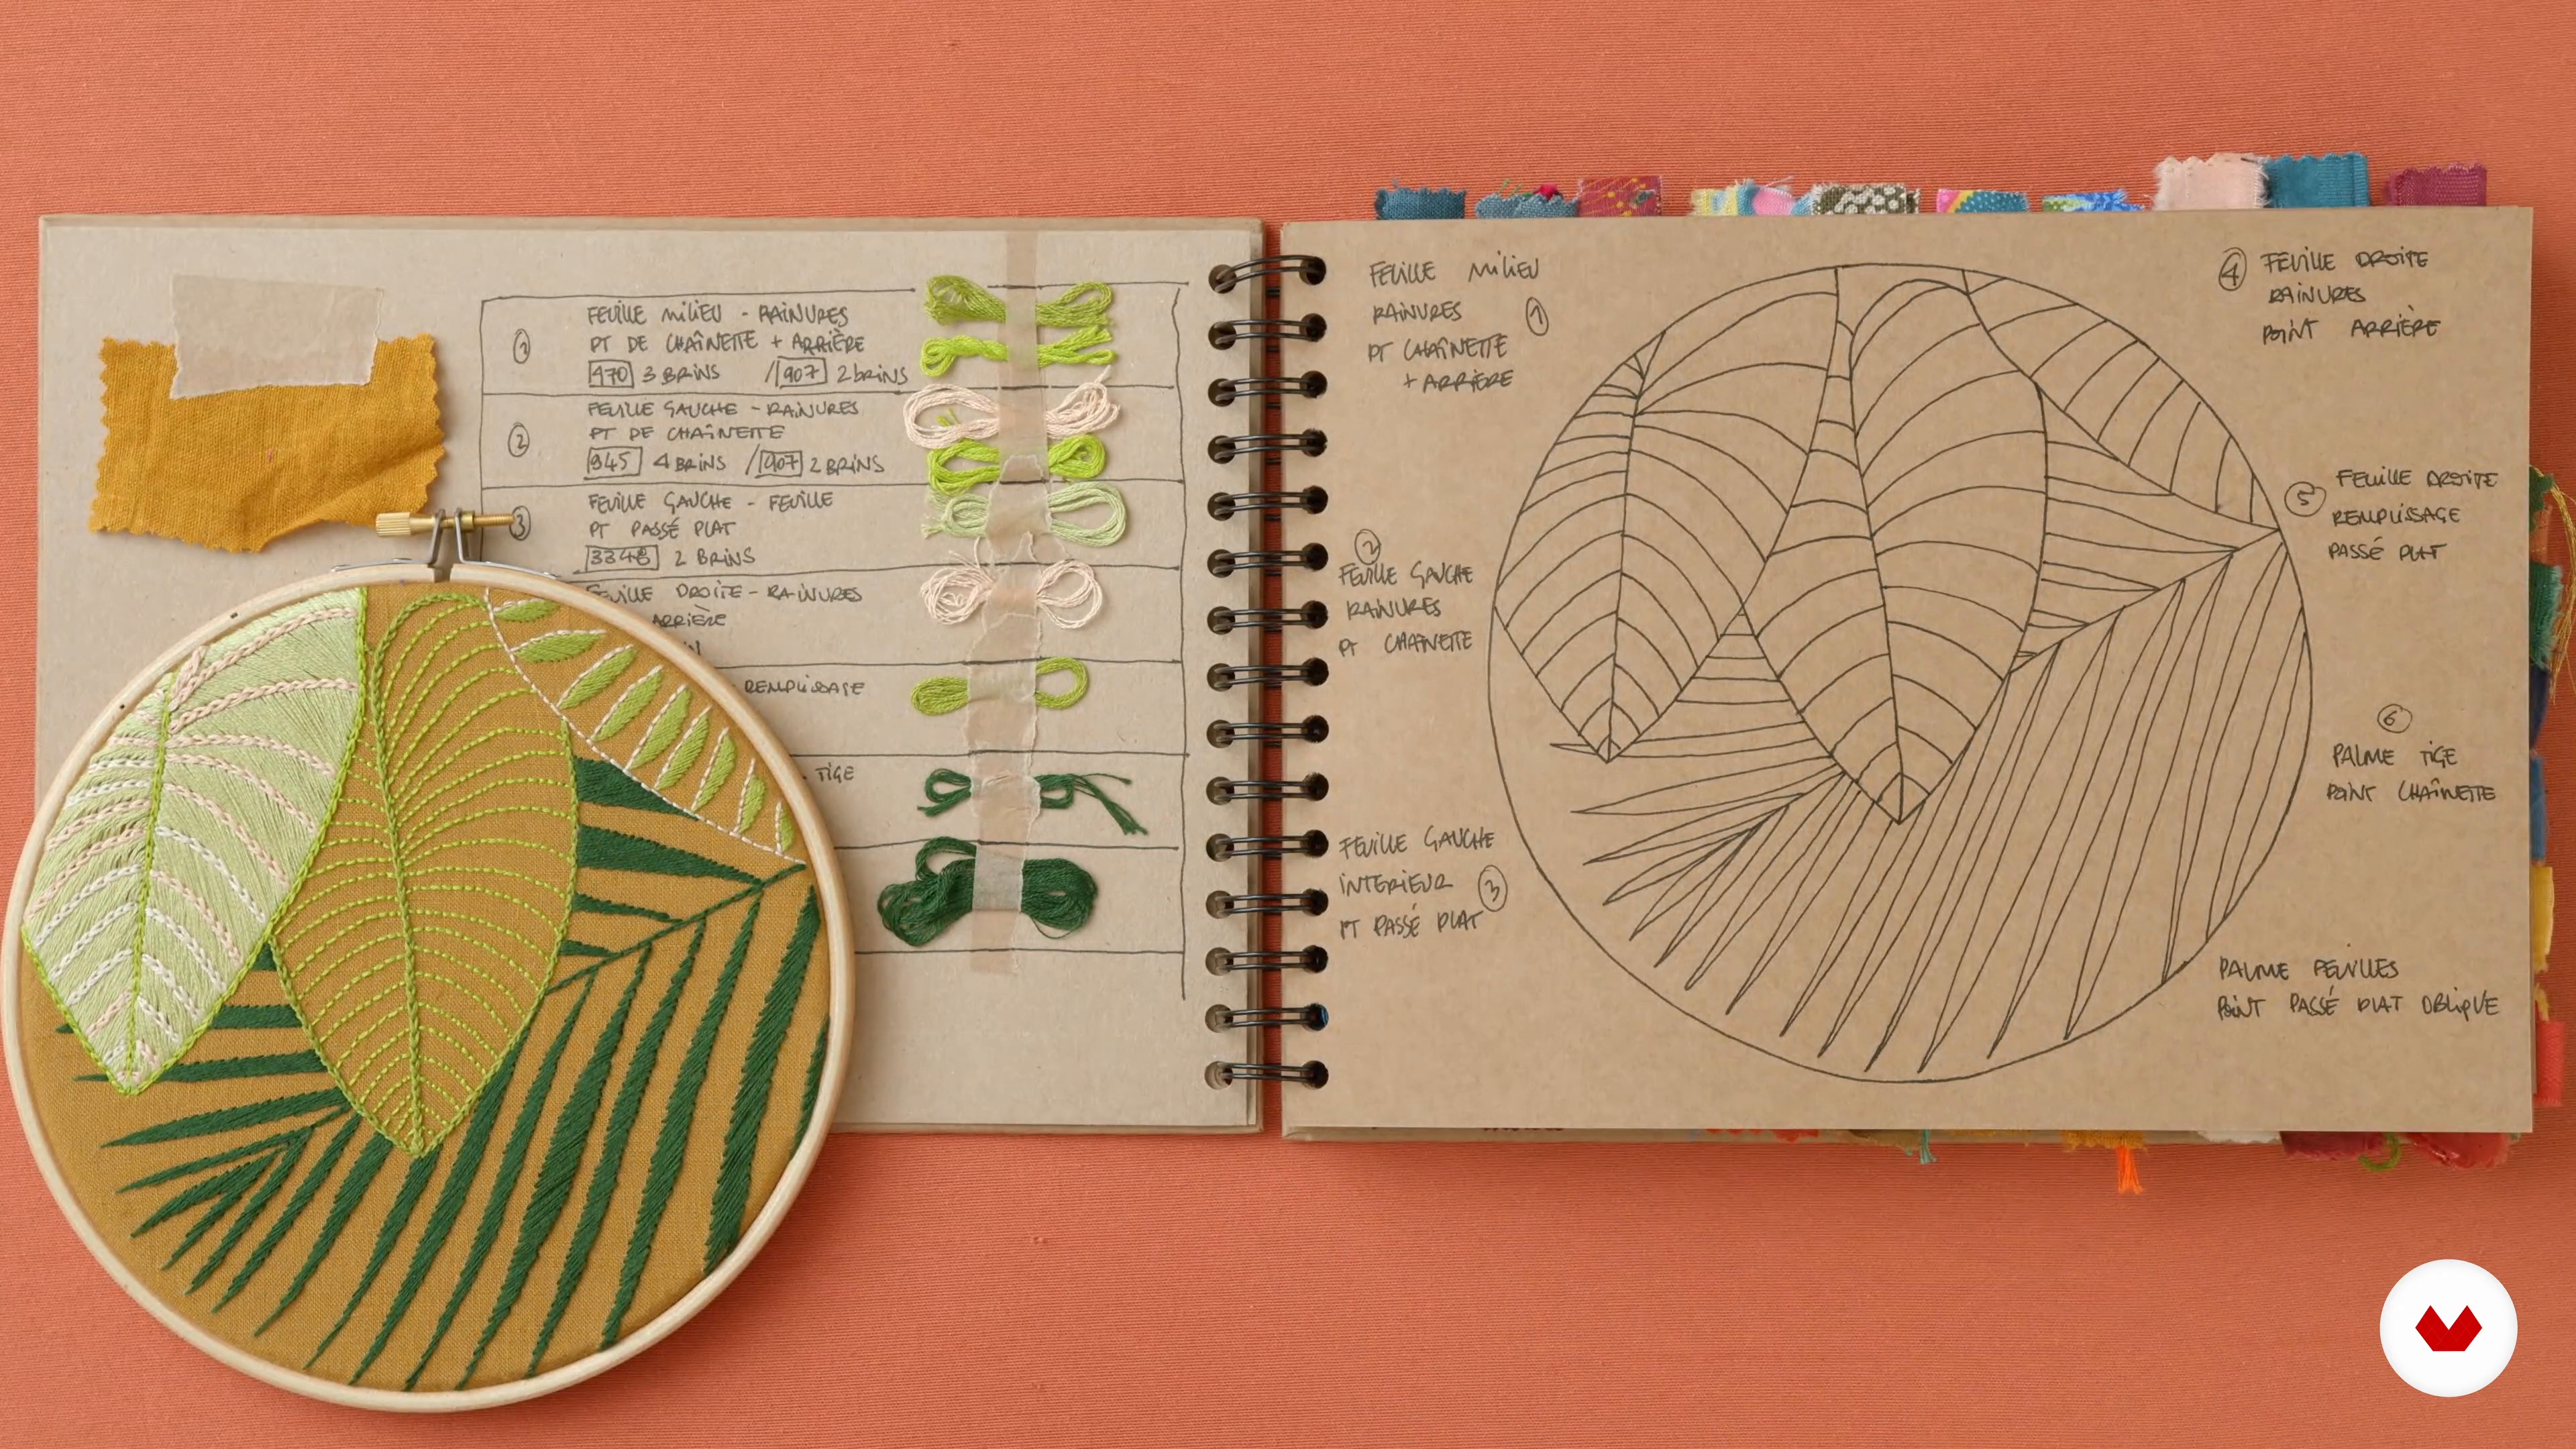 1
FEUILLE MILIEU - RAINURES
PT DE CHAÎNETTE + ARRIÈRE
470 3 BRINS / 907 2 BRINS
2
FEUILLE GAUCHE - RAINURES
PT DE CHAÎNETTE
945 4 BRINS / 907 2 BRINS
3
FEUILLE GAUCHE - FEUILLE
PT PASSÉ PLAT
3348 2 BRINS
FEUILLE DROITE - RAINURES
ARRIÈRE
REMPLISSAGE
- TIGE
FEUILLE MILIEU
RAINURES 1
PT CHAÎNETTE
+ ARRIÈRE
2
FEUILLE GAUCHE
RAINURES
PT CHAÎNETTE
FEUILLE GAUCHE
INTERIEUR 3
PT PASSÉ PLAT
4 FEUILLE DROITE
RAINURES
POINT ARRIÈRE
5 FEUILLE DROITE
REMPLISSAGE
PASSÉ PLAT
6
PALME TIGE
POINT CHAÎNETTE
PALME FEUILLES
POINT PASSÉ PLAT OBLIQUE